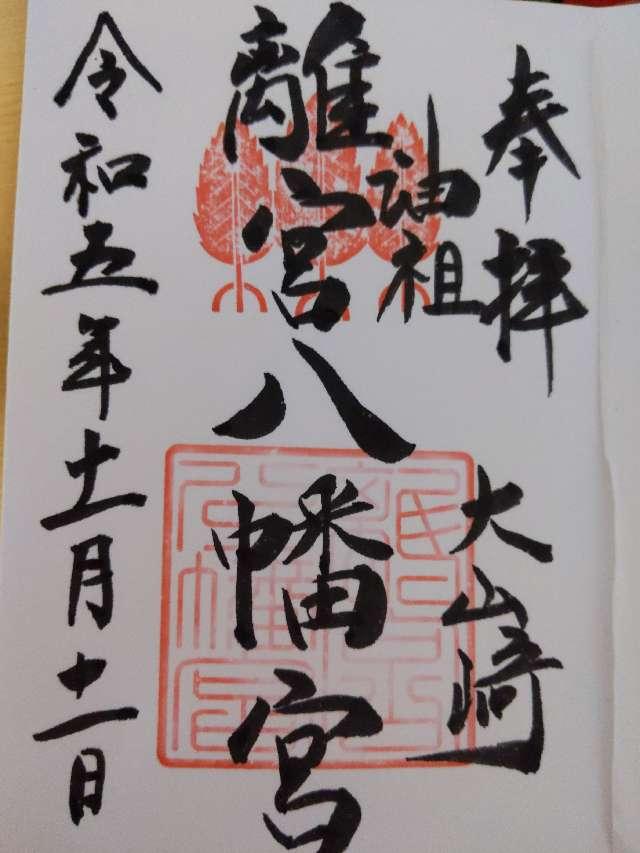 奉拝
大山崎
油祖
離宮八幡宮
令和五年十一月十一日